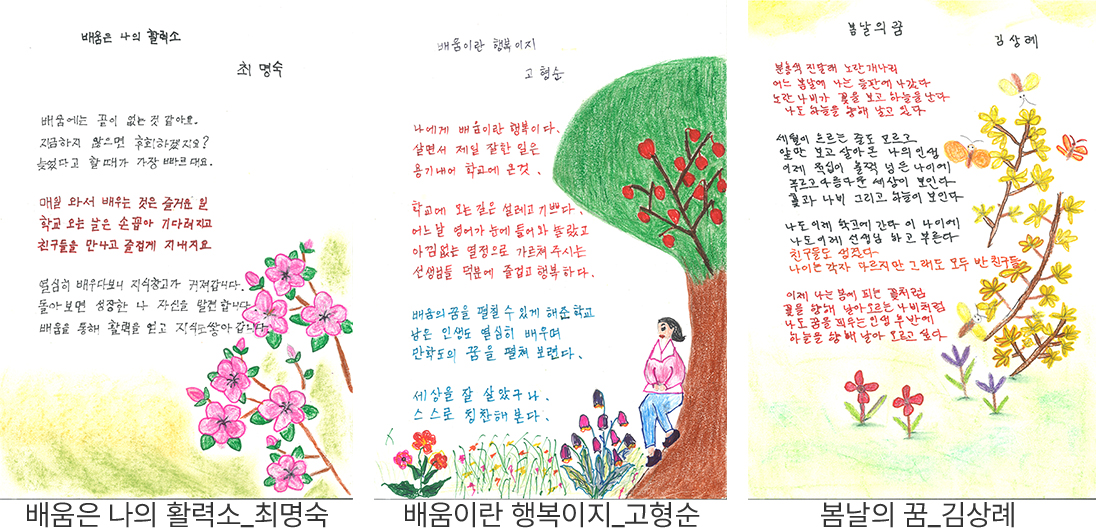 배움은 나의 활력소
최 명숙
배움에는 끝이 없는 것 같아요.
지금하지 않으면 후회하겠지요?
늦었다고 할 때가 가장 빠르대요.
매일 와서 배우는 것은 즐거운 일
학교 오는 날은 손꼽아 기다려지고
친구들을 만나고 즐겁게 지내지요
열심히 배우다보니 지식창고가 커져갑니다.
돌아보면 성장한 나 자신을 발견합니다.
배움을 통해 활력을 얻고 지식도 쌓아 갑니다.
배움은 나의 활력소_최명숙
배움이란 행복이지
고 형순
나에게 배움이란 행복이다.
살면서 제일 잘한 일은
용기내어 학교에 온것.
학교에 오는 길은 설레고 기쁘다.
어느날 영어가 눈에 들어와 놀랐고
아낌없는 열정으로 가르쳐 주시는
선생님들 덕분에 즐겁고 행복하다.
배움의 꿈을 펼칠 수 있게 해준 학교
남은 인생도 열심히 배우며
만학도의 꿈을 펼쳐 보련다.
세상을 잘 살았구나.
스스로 칭찬해 본다.
배움이란 행복이지_고형순
봄날의 꿈
김상례
분홍색 진달래 노란 개나리
어느 봄날에 나는 들판에 나갔다
노란 나비가 꽃을 보고 하늘을 난다
나도 하늘을 향해 날고 싶다
세월이 흐르는 줄도 모르고
앞만 보고 살아온 나의 인생
이제 칠십이 훌쩍 넘은 나이에
푸르고 아름다운 세상이 보인다
꽃과 나비 그리고 하늘이 보인다
나도 이제 학교에 간다 이 나이에
나도 이제 선생님 하고 부른다
친구들도 생겼다
나이는 각자 다르지만 그래도 모두 반 친구들
이제 나는 봄에 피는 꽃처럼
꽃을 향해 날아오르는 나비처럼
나도 꿈을 피우는 인생 후반에
하늘을 향해 날아 오르고 싶다
봄날의 꿈_김상례